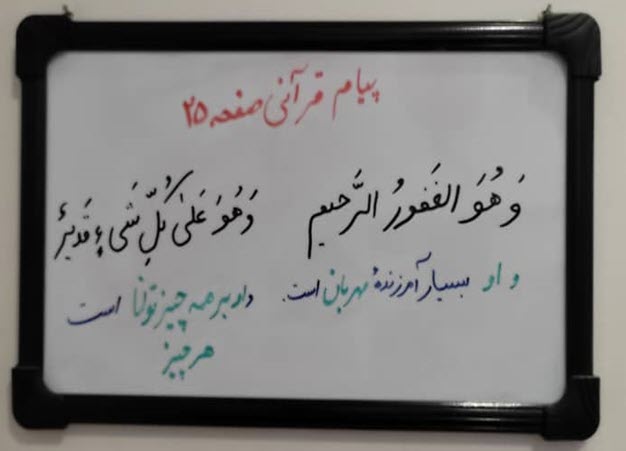 پیام قرآنی صفحه ۲۵
وَ هُوَ الغَفورُ الرَّحیم
وَ هُوَ عَلیٰ کُلِّ شَیءٍ قَدیرٌ
و او بسیار آمرزندهٔ مهربان است.
و او بر همه چیز توانا است
هر چیز